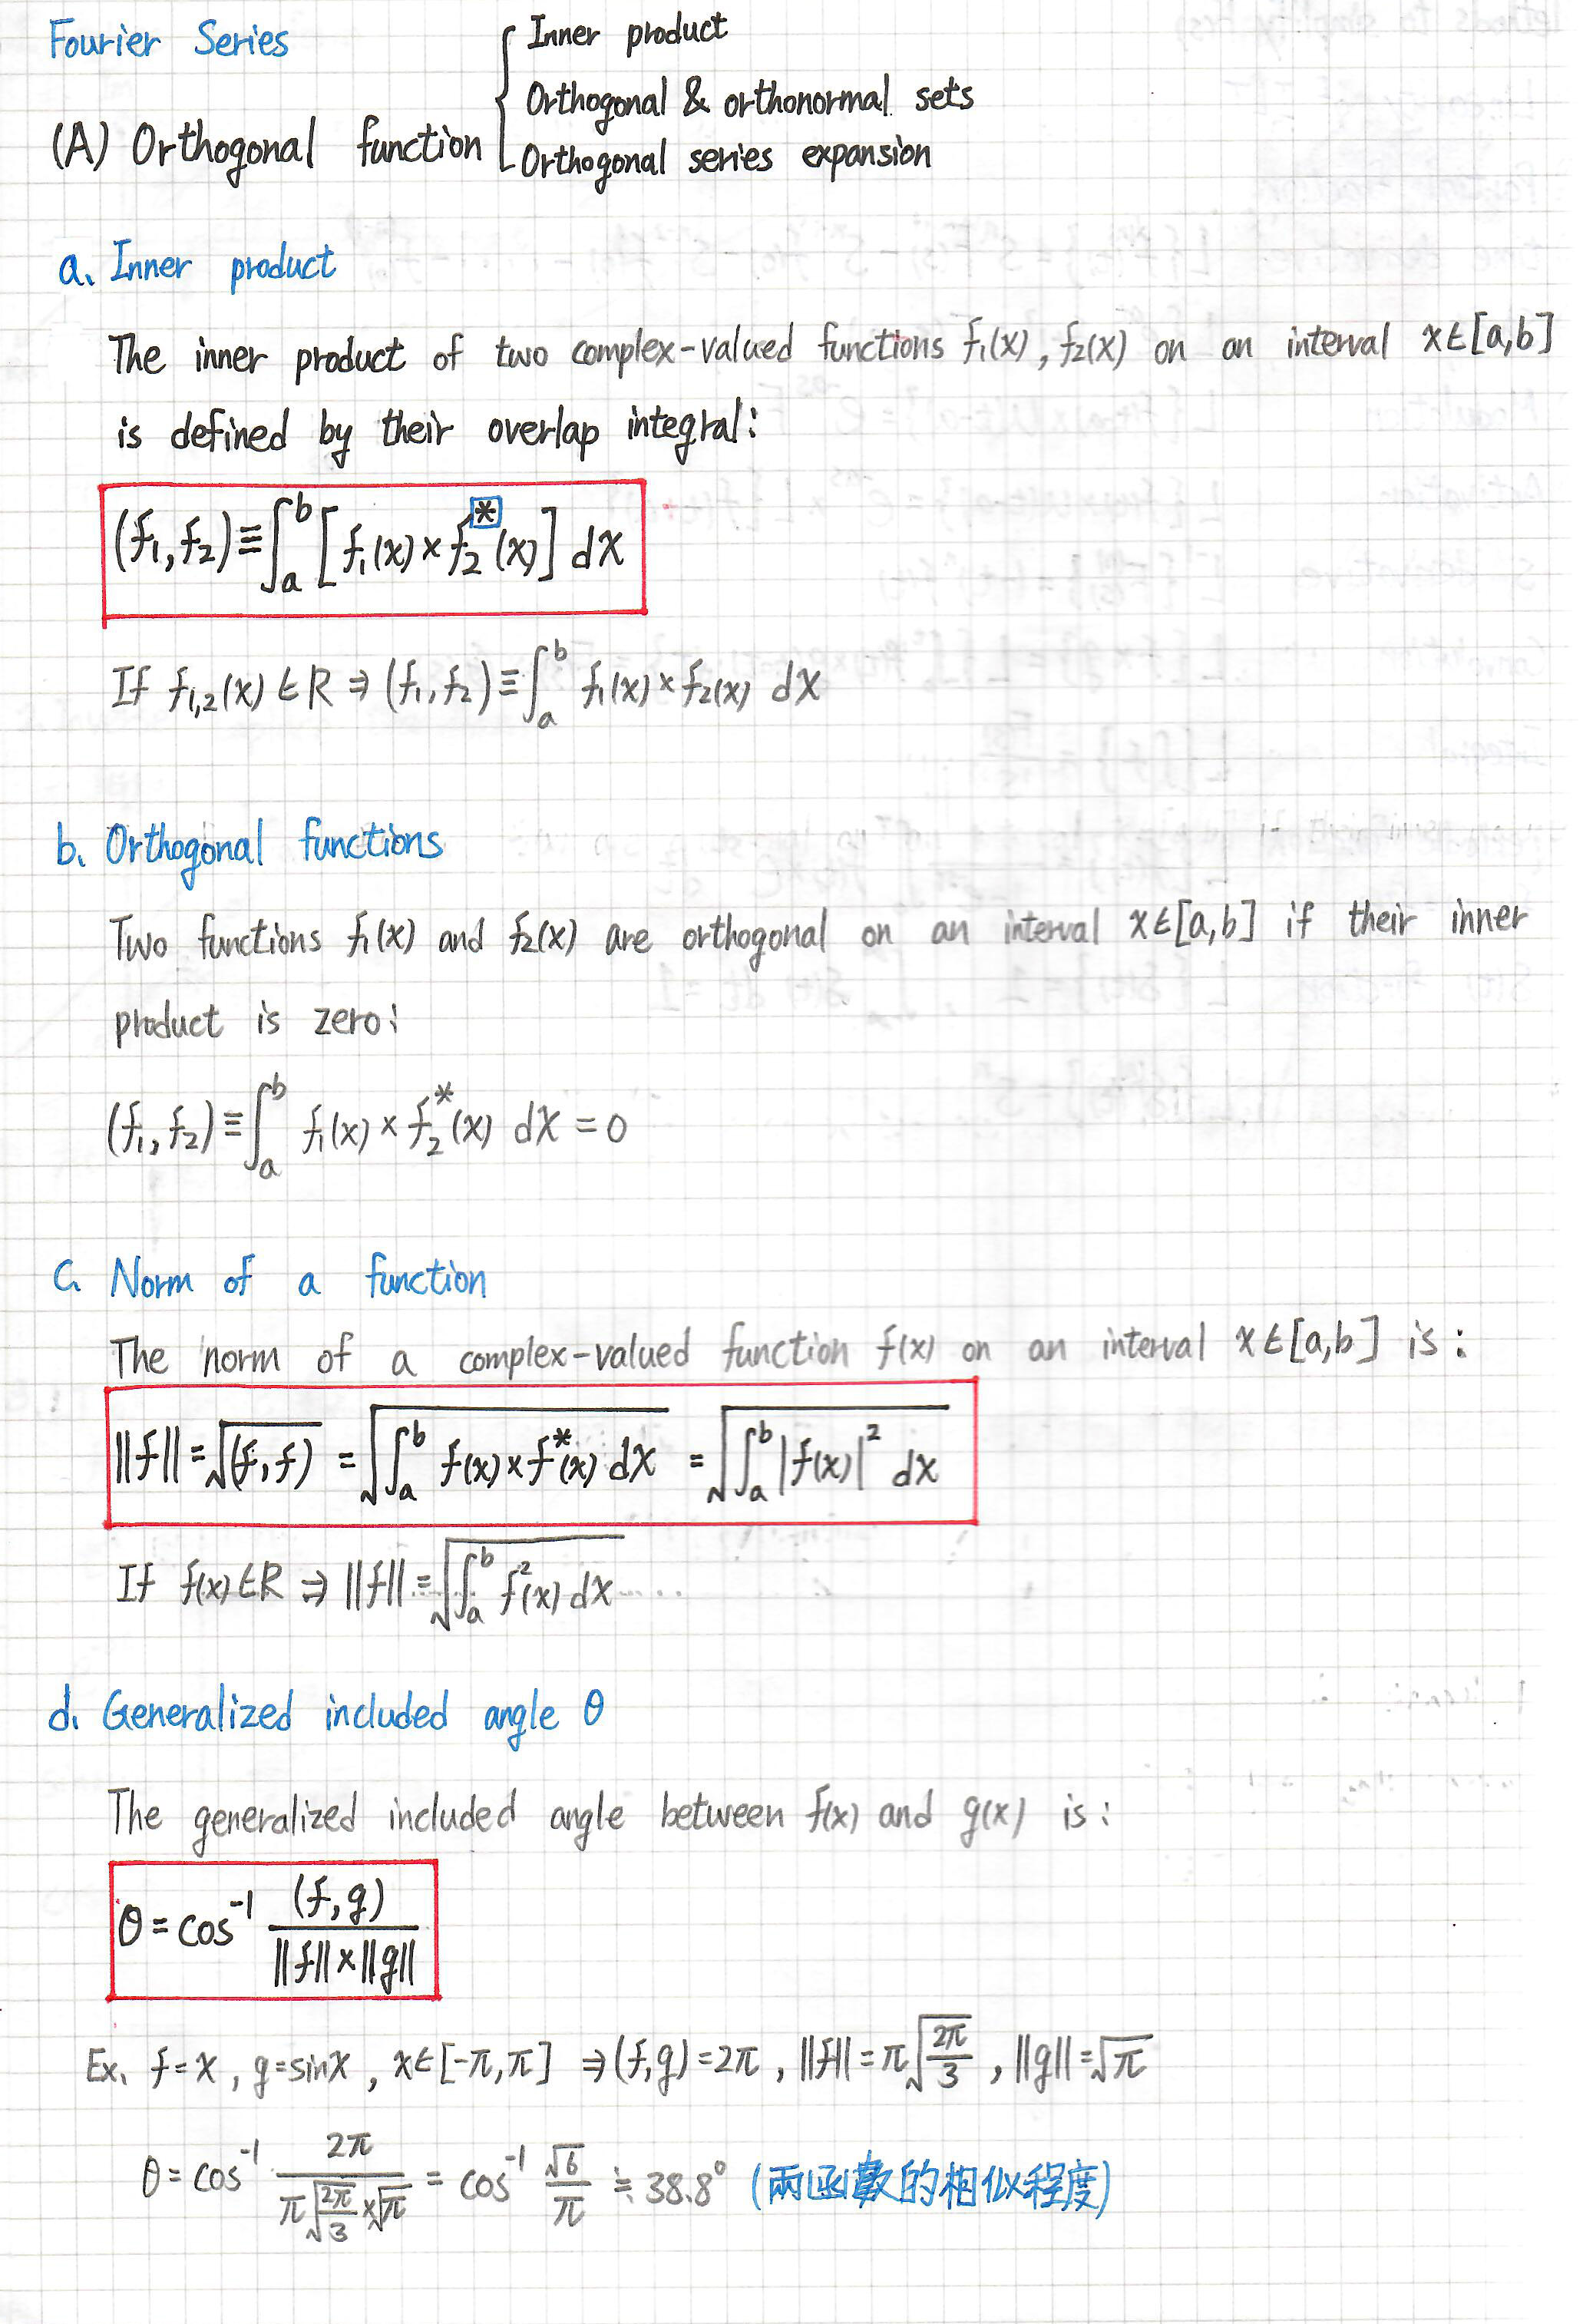 Fourier Series
(A) Orthogonal function { Inner product
Orthogonal & orthonormal sets
Orthogonal series expansion
a. Inner product
The inner product of two complex-valued functions f₁(x), f₂(x) on an interval x∈[a,b]
is defined by their overlap integral:
(f₁,f₂)≡∫ₐᵇ[f₁(x)×f₂*(x)] dx
If f₁,₂(x)∈R ⇒ (f₁,f₂)≡∫ₐᵇ f₁(x)×f₂(x) dx
b. Orthogonal functions
Two functions f₁(x) and f₂(x) are orthogonal on an interval x∈[a,b] if their inner
product is zero:
(f₁,f₂)≡∫ₐᵇ f₁(x)×f₂*(x) dx = 0
c. Norm of a function
The norm of a complex-valued function f(x) on an interval x∈[a,b] is:
||f||=√(f,f) = √(∫ₐᵇ f(x)×f*(x) dx) = √(∫ₐᵇ |f(x)|² dx)
If f(x)∈R ⇒ ||f||=√(∫ₐᵇ f²(x) dx)
d. Generalized included angle θ
The generalized included angle between f(x) and g(x) is:
θ=cos⁻¹ (f,g)/(||f||×||g||)
Ex. f=x, g=sinx, x∈[-π,π] ⇒(f,g)=2π, ||f||=π√(2π/3), ||g||=√π
θ=cos⁻¹ 2π/(π√(2π/3)×√π) = cos⁻¹ √6/π ≒ 38.8° (兩函數的相似程度)